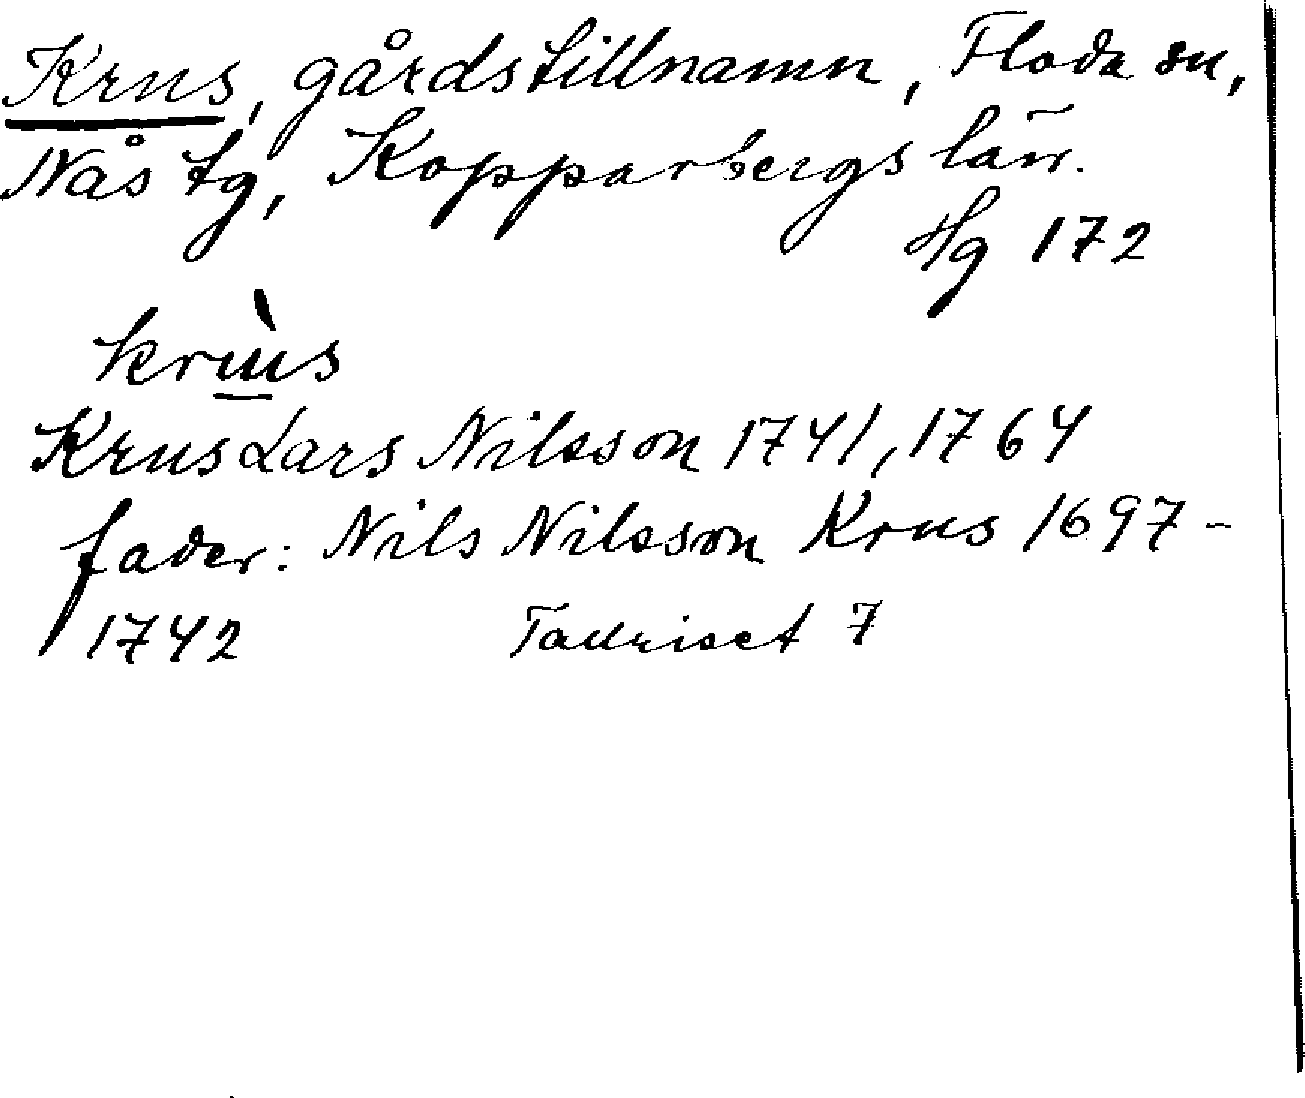 Krus, gårdstillnamn, Floda sn,
Nås tg, Kopparbergs län.
Hg 172
krùs
Krus Lars Nilsson 1741, 1764
fader: Nils Nilsson Krus 1697-
1742 7